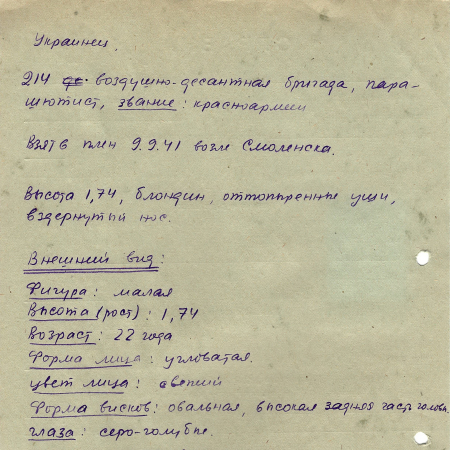 Украинец.
214 воздушно-десантная бригада, пара-
шютист, звание: красноармеец
Взят в плен 9.9.41 возле Смоленска.
Высота 1,74, блондин, оттопыренные уши,
вздернутый нос.
Внешний вид:
Фигура: малая
Высота (рост): 1,74
Возраст: 22 года
Форма лица: угловатая.
цвет лица: свежий
Форма висков: овальная, высокая задняя часть головы.
глаза: серо-голубые.